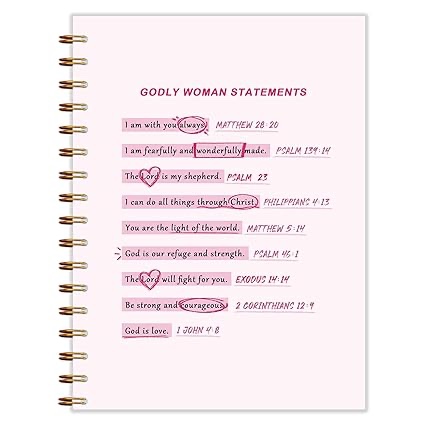 GODLY WOMAN STATEMENTS
I am with you always. MATTHEW 28:20
I am fearfully and wonderfully made. PSALM 139:14
The Lord is my shepherd. PSALM 23
I can do all things through Christ. PHILIPPIANS 4:13
You are the light of the world. MATTHEW 5:14
God is our refuge and strength. PSALM 46:1
The Lord will fight for you. EXODUS 14:14
Be strong and courageous. 2 CORINTHIANS 12:9
God is love. 1 JOHN 4:8